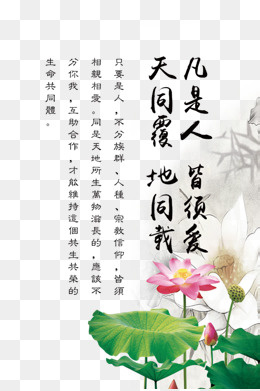 凡是人 皆須愛
天同覆 地同載
只要是人，不分族群、人種、宗教信仰，皆須
相親相愛。同是天地所生萬物滋長的，應該不
分你我，互助合作，才能維持這個共生共榮的
生命共同體。